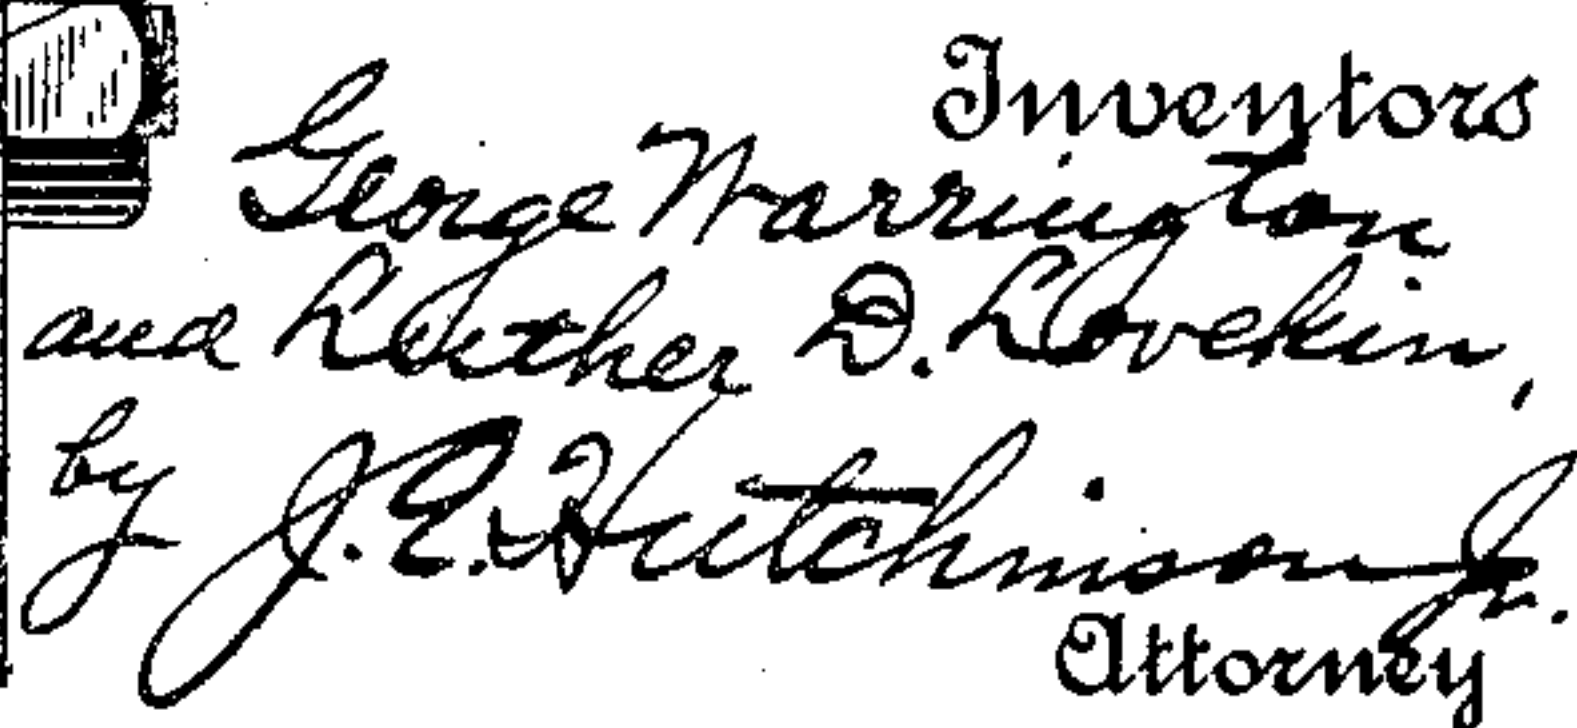 Inventors
George Warrington
and Luther D. Lovekin,
by J. E. Hutchinson Jr.
Attorney